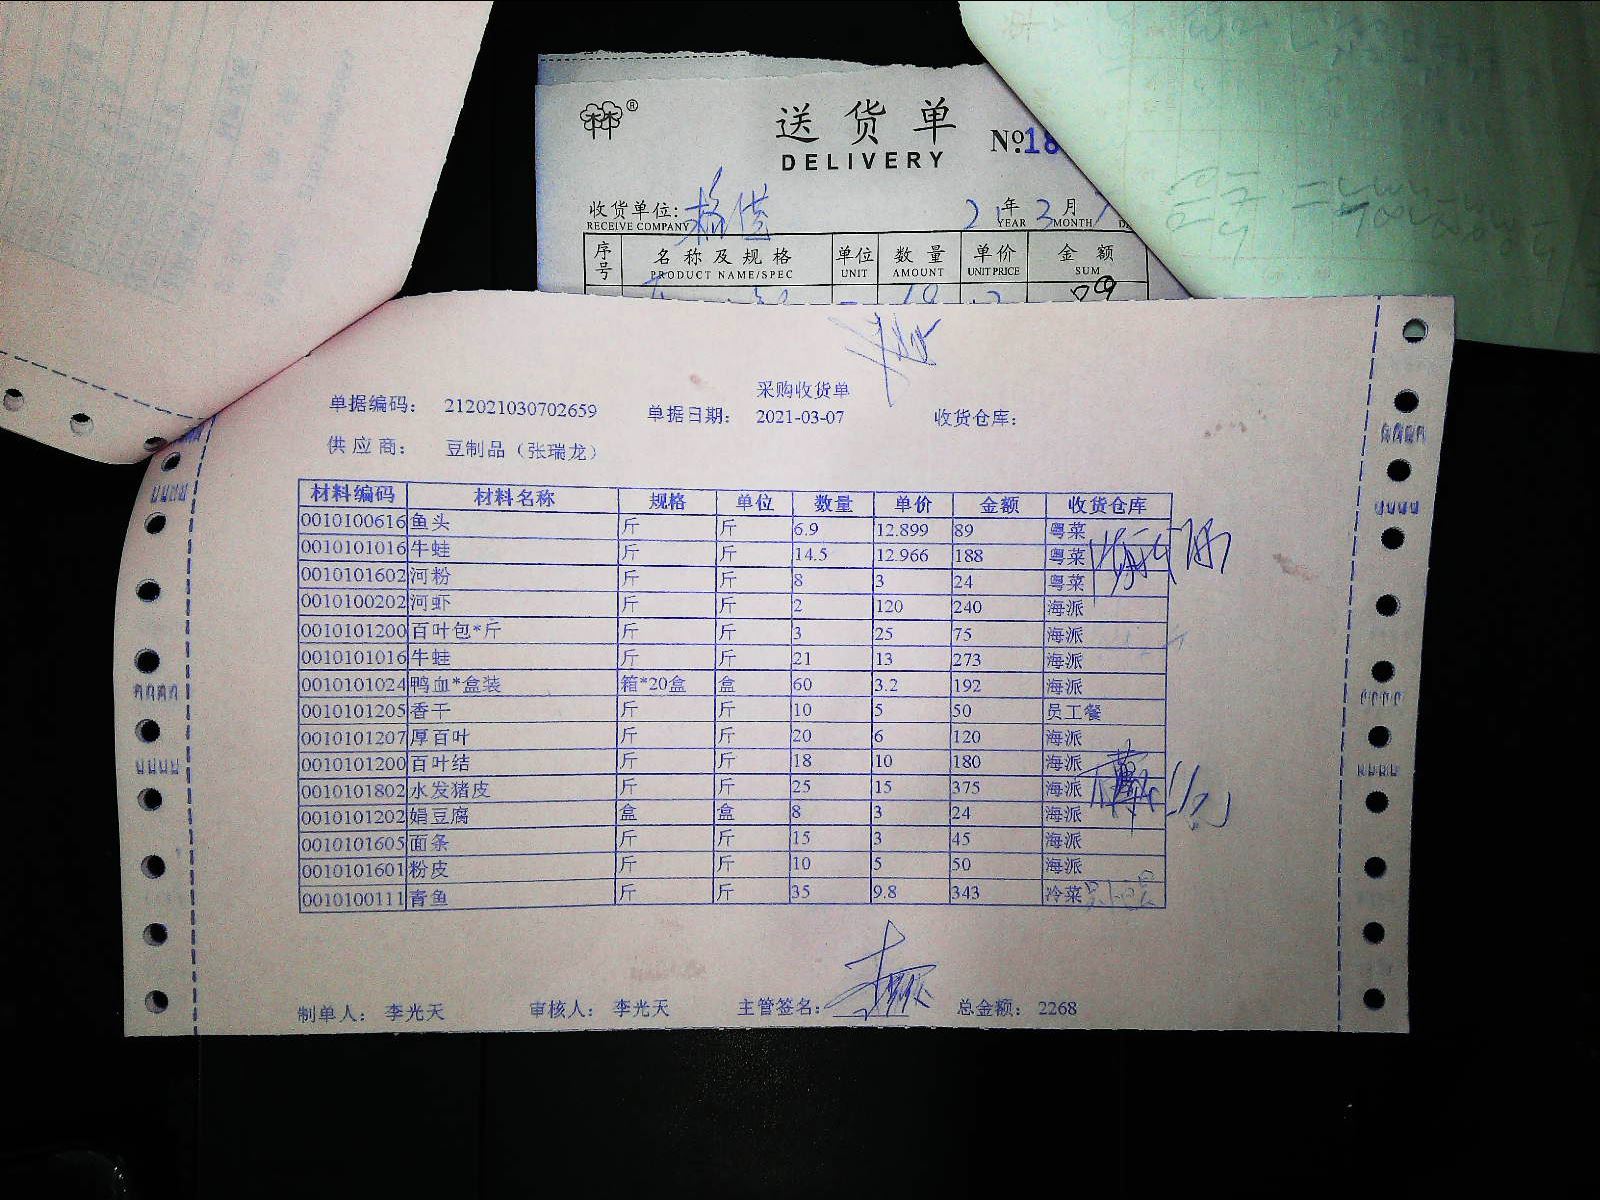 送货单
DELIVERY
№18
收货单位:
RECEIVE COMPANY
21年 3月
YEAR MONTH
序号 名称及规格 单位 数量 单价 金额
PRODUCT NAME/SPEC UNIT AMOUNT UNIT PRICE SUM
采购收货单
单据编码: 212021030702659 单据日期: 2021-03-07 收货仓库:
供应商: 豆制品（张瑞龙）
材料编码 材料名称 规格 单位 数量 单价 金额 收货仓库
0010100616 鱼头 斤 斤 6.9 12.899 89 粤菜
0010101016 牛蛙 斤 斤 14.5 12.966 188 粤菜
0010101602 河粉 斤 斤 8 3 24 粤菜
0010100202 河虾 斤 斤 2 120 240 海派
0010101200 百叶包*斤 斤 斤 3 25 75 海派
0010101016 牛蛙 斤 斤 21 13 273 海派
0010101024 鸭血*盒装 箱*20盒 盒 60 3.2 192 海派
0010101205 香干 斤 斤 10 5 50 员工餐
0010101207 厚百叶 斤 斤 20 6 120 海派
0010101200 百叶结 斤 斤 18 10 180 海派
0010101802 水发猪皮 斤 斤 25 15 375 海派
0010101202 娟豆腐 盒 盒 8 3 24 海派
0010101605 面条 斤 斤 15 3 45 海派
0010101601 粉皮 斤 斤 10 5 50 海派
0010100111 青鱼 斤 斤 35 9.8 343 冷菜
制单人: 李光天 审核人: 李光天 主管签名: 总金额: 2268